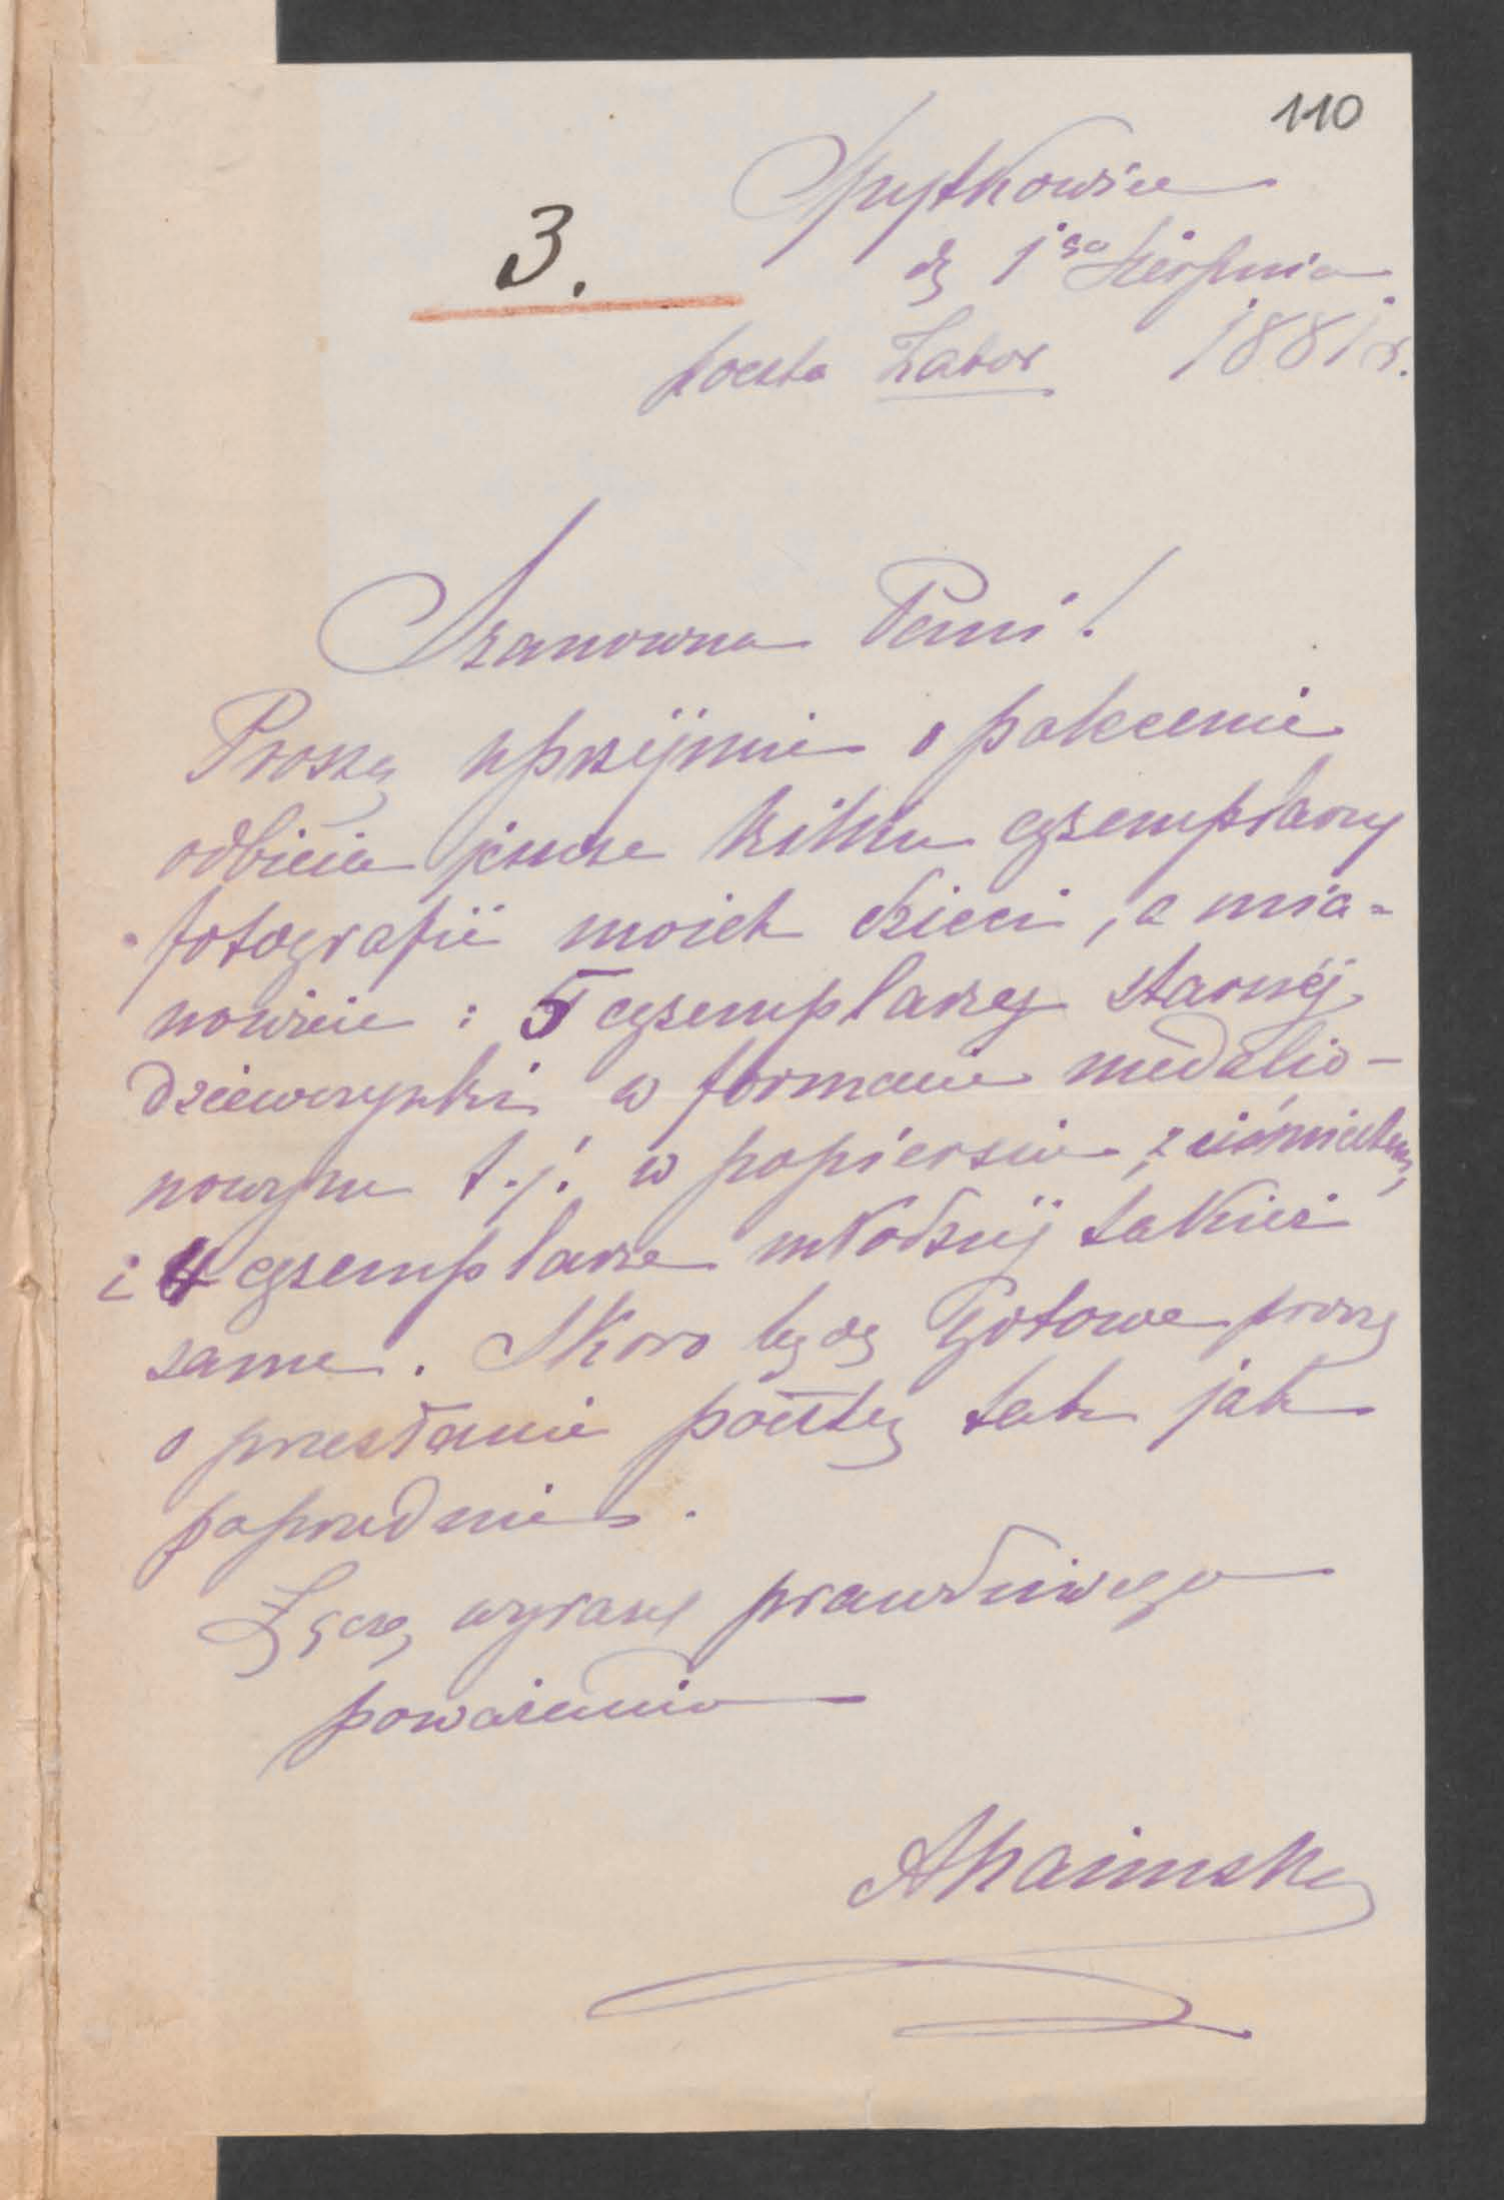 110
Spytkowice
3.
d. 1go Sierpnia
poczta Zator 1881 r.
Szanowna Pani!
Proszę uprzejmie o polecenie
odbicia jeszcze kilku egzemplarzy
fotografii moich dzieci, a mia=
nowicie: 5 egzemplarzy starszéj
dziewczynki w formacie medalio-
nowym t.j. w popiersiu, z uśmiechem,
i 4 egzemplarze młodszéj takież
same. Skoro będą gotowe proszę
o przesłanie pocztą tak jak
poprzednie.
Łączę wyrazy prawdziwego
poważania